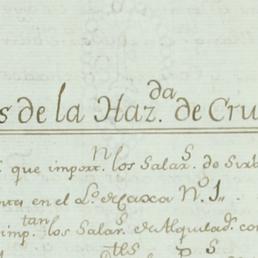 s de la Haz.da de Cru
que import.n los Salar.s de Sirv
en el L.o de Caxa N.o 1,,
imp.tan los Salar.s de Alquilad.s con